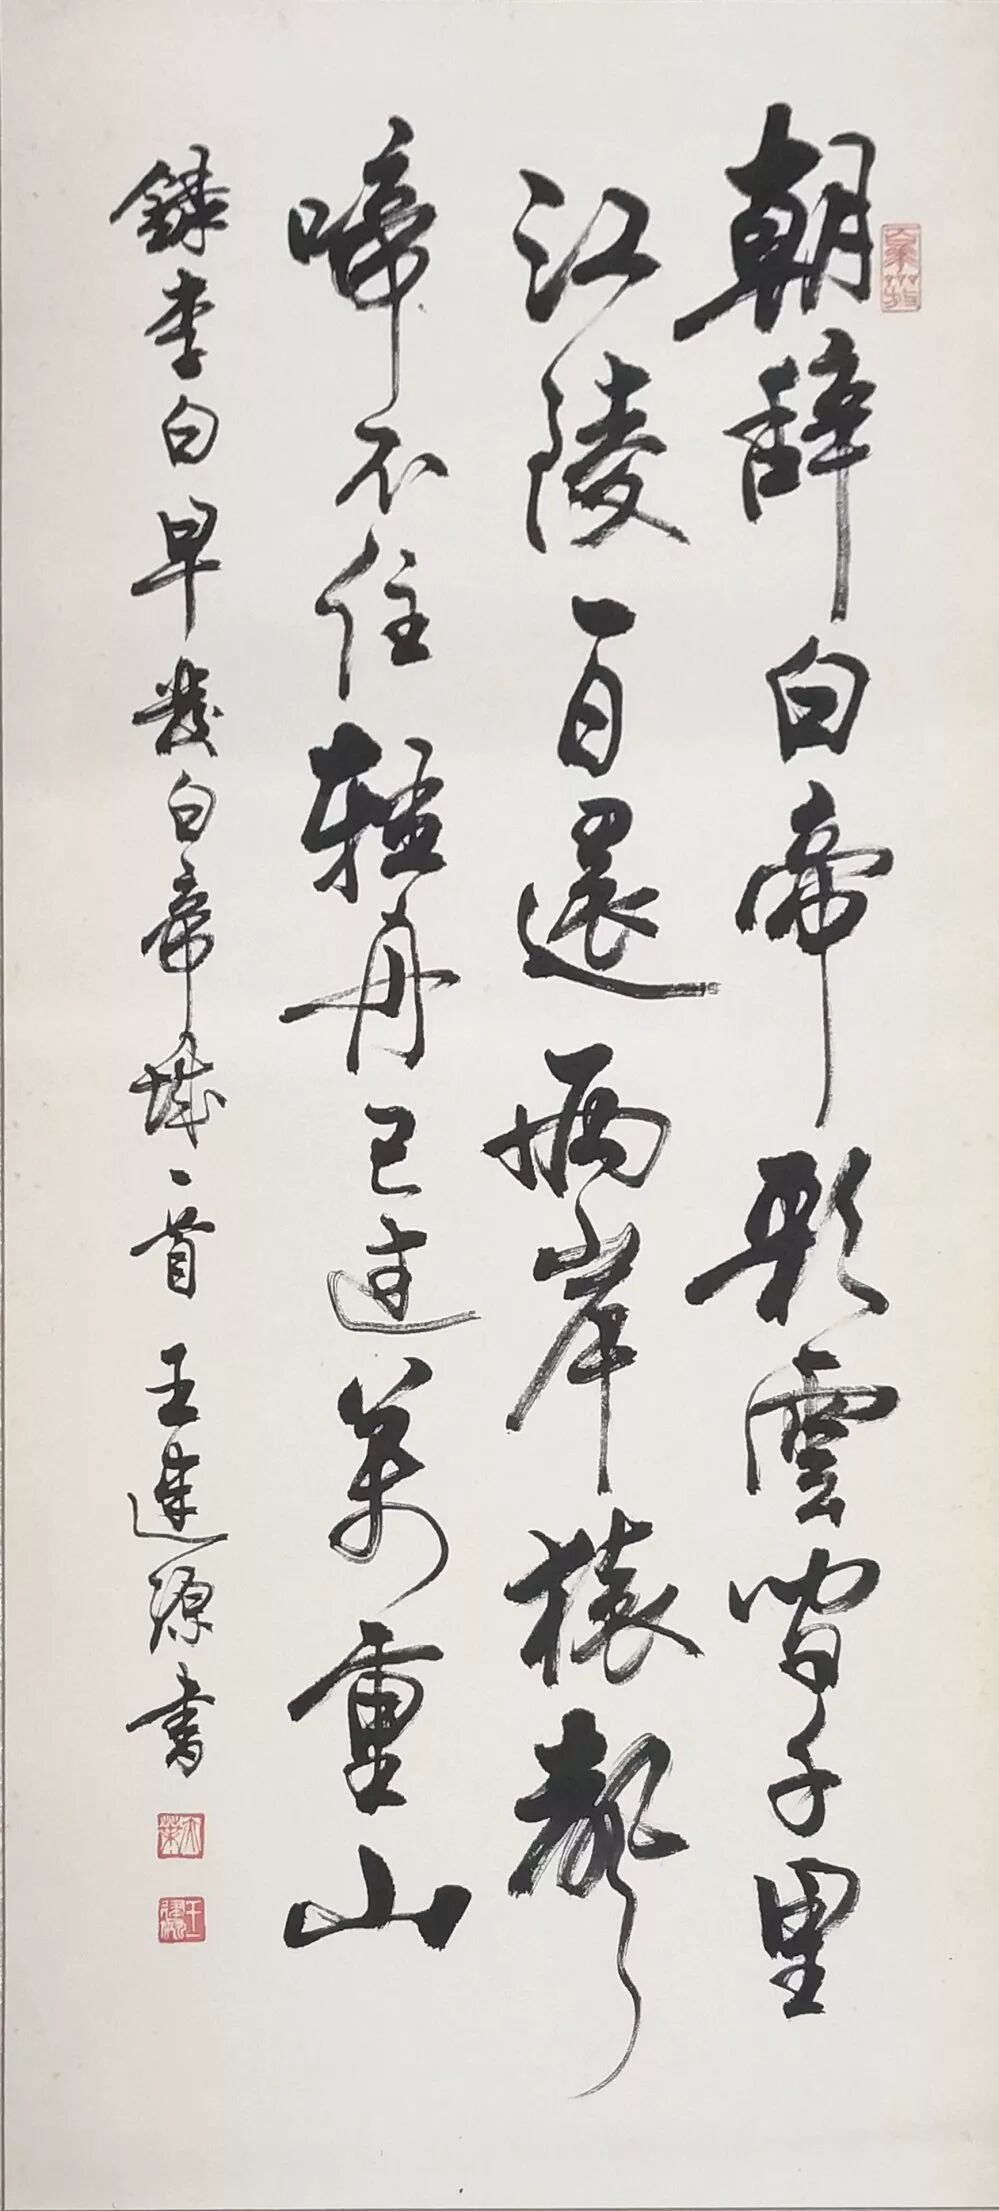 朝辭白帝彩雲間千里
江陵一日還兩岸猿聲
啼不住輕舟已過萬重山
錄李白早發白帝城一首 王源書